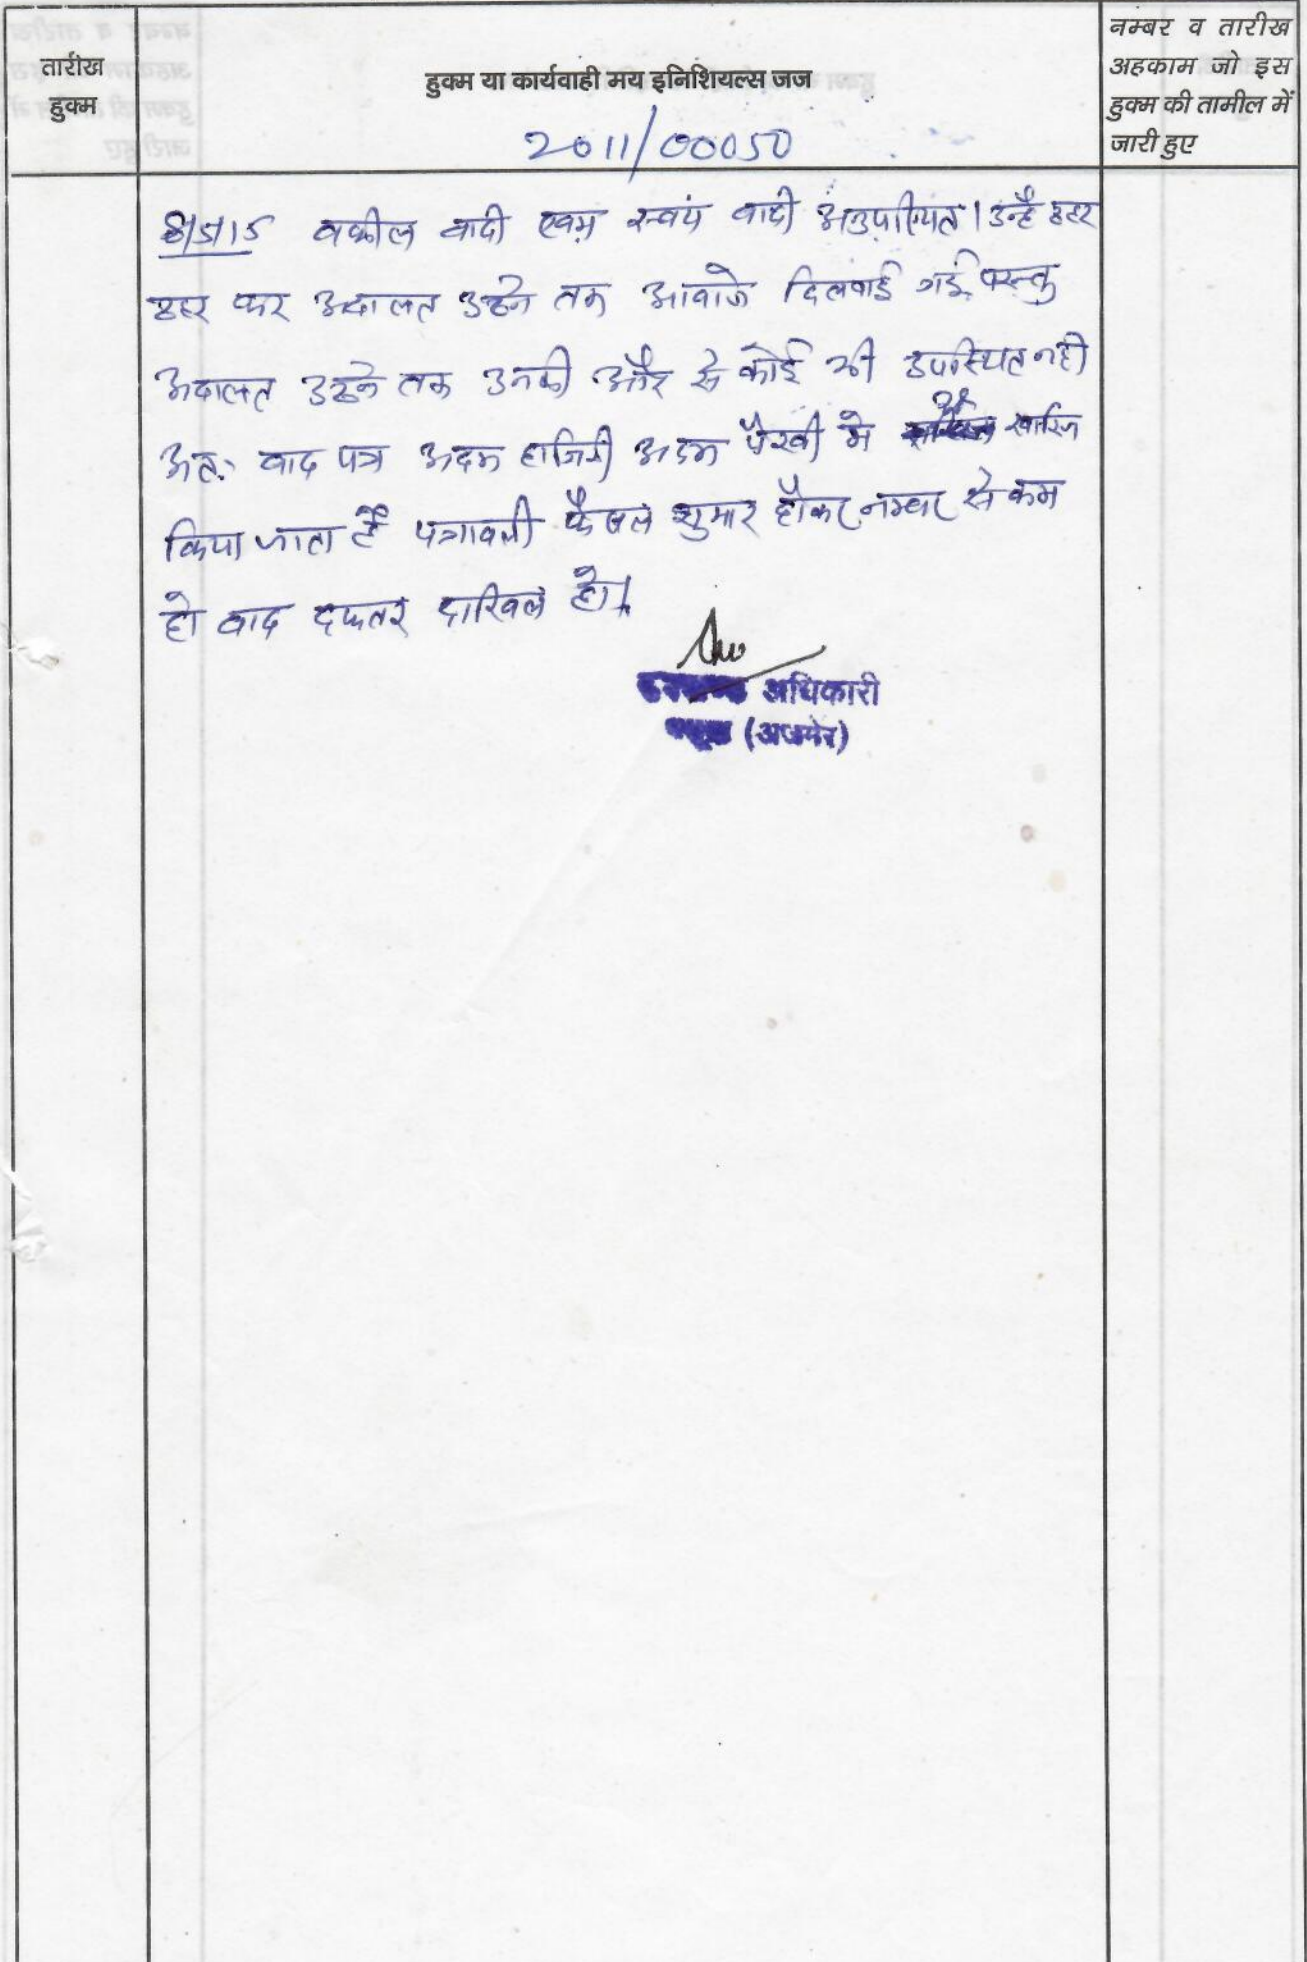 तारीख
हुक्म
हुक्म या कार्यवाही मय इनिशियल्स जज
2011/00050
नम्बर व तारीख
अहकाम जो इस
हुक्म की तामील में
जारी हुए
8/5/15 वकील वादी एवम स्वयं वादी अनुपस्थित। उन्हे ठहर
ठहर कर अदालत उठने तक आवाजे दिलवाई गई परन्तु
अदालत उठने तक उनकी और से कोई भी उपस्थित नही
अतः वाद पत्र अदम हाजिरी अदम पैरवी मे खारिज
किया जाता है पत्रावली फैसल शुमार होकर नम्बर से कम
हो वाद दफ्तर दाखिल हो।
अधिकारी
(अजमेर)